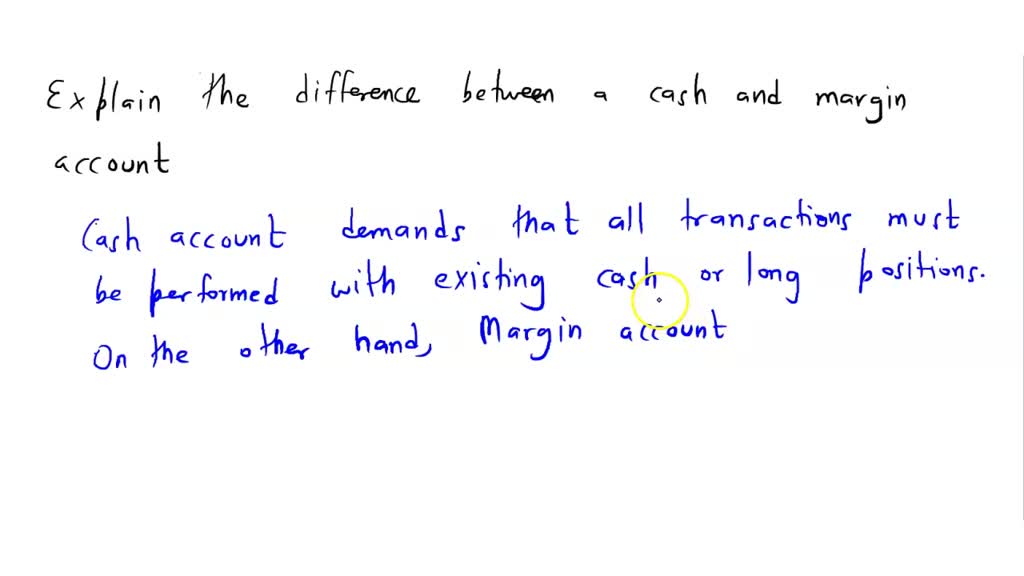 Explain the difference between a cash and margin
account
Cash account demands that all transactions must
be performed with existing cash or long positions.
On the other hand, Margin account